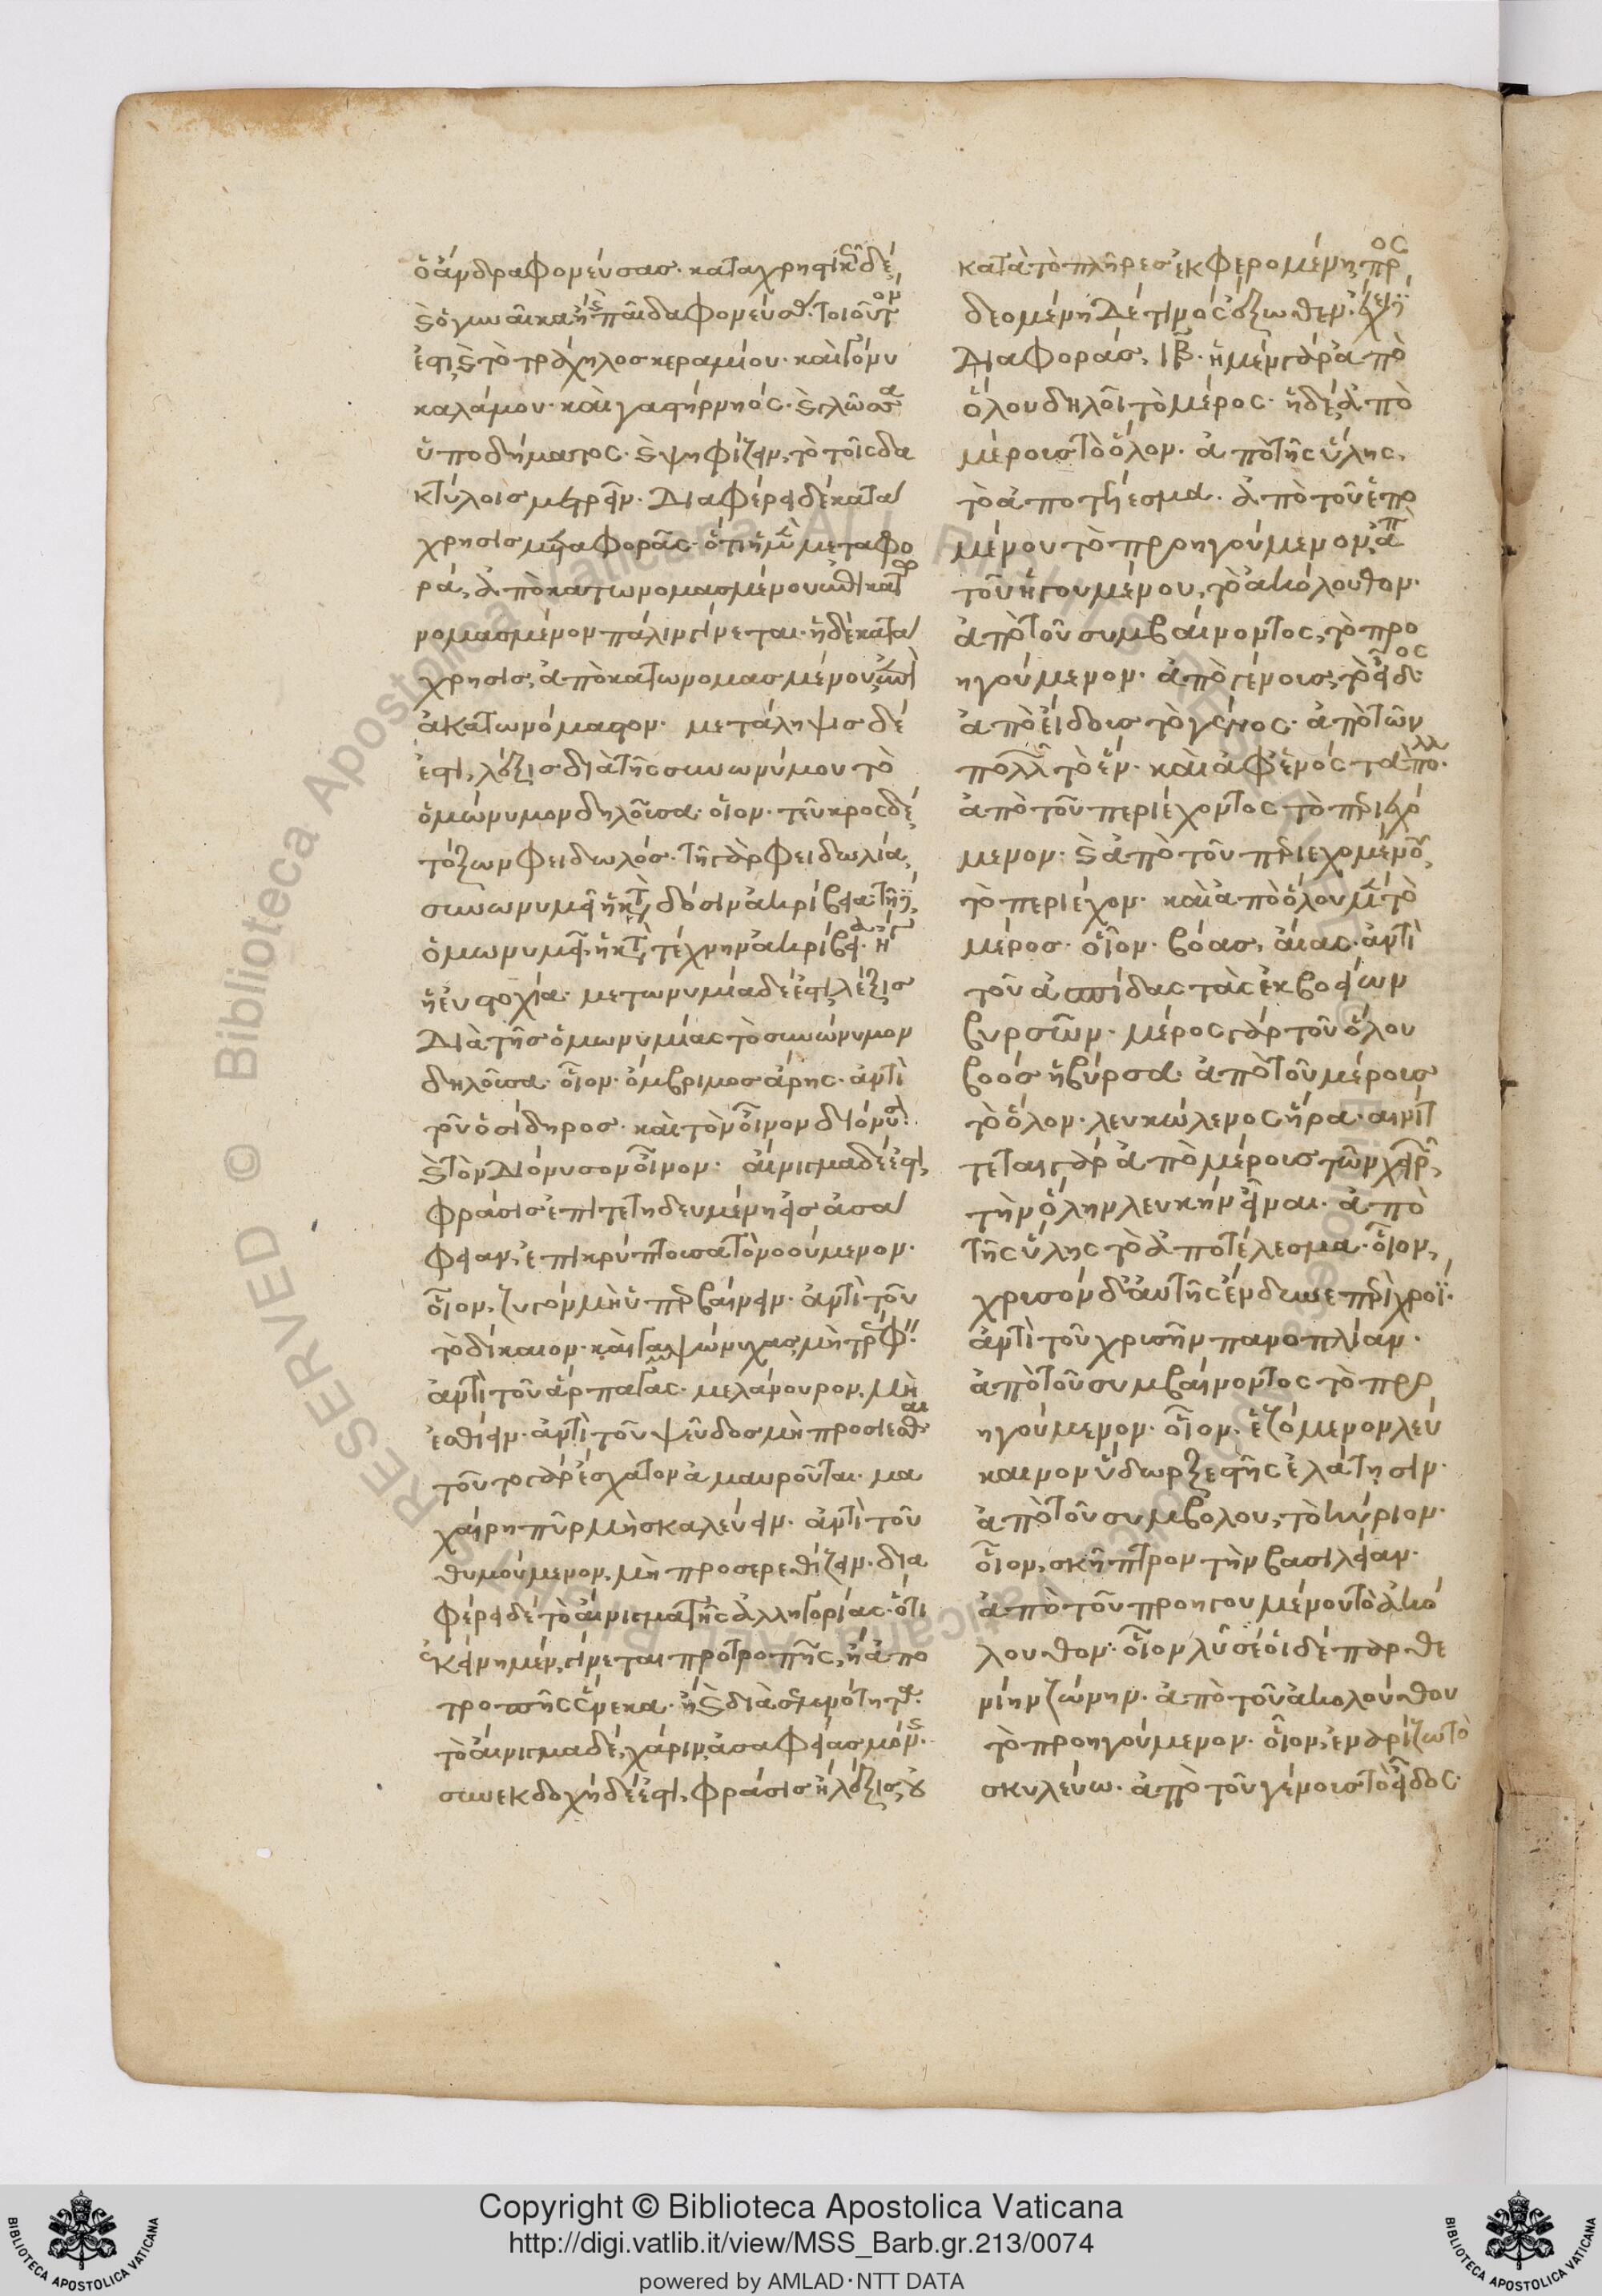 ὁ ἄνδρα φονεύσας· καταχρηστικῶς δέ,
καὶ ὁ γυναῖκα ἢ παῖδα φονεύσας· τοιοῦτον
ἐστι καὶ τὸ τράχηλος κεραμίου· καὶ γόνυ
καλάμου· καὶ γαστὴρ νηός· καὶ γλῶσσα
ὑποδήματος· καὶ ψηφίζειν, τὸ τοῖς δα
κτύλοις μετρεῖν· διαφέρει δὲ κατά
χρησις μεταφορᾶς· ὅτι ἡ μὲν μεταφο
ρά, ἀπὸ κατωνομασμένου ἐπὶ κατω
νομασμένον πάλιν γίνεται· ἡ δὲ κατά
χρησις, ἀπὸ κατωνομασμένου, ἐπὶ
ἀκατωνόμαστον· μετάληψις δέ
ἐστι, λέξις διὰ τῆς συνωνύμου τὸ
ὁμώνυμον δηλοῦσα· οἷον· τεῦκρος δέ,
τόξων φειδωλός· τῇ γὰρ φειδωλίᾳ,
συνωνυμεῖ ἡ κατὰ δόσιν ἀκρίβεια· τῇ
ὁμωνυμεῖ, ἡ κατὰ τέχνην ἀκρίβεια·
ἡ εὐστοχία· μετωνυμία δέ ἐστι, λέξις
διὰ τῆς ὁμωνυμίας τὸ συνώνυμον
δηλοῦσα· οἷον· ὄμβριμος ἄρης· ἀντὶ
τοῦ ὁ σίδηρος· καὶ τὸν οἶνον διόνυσον·
καὶ τὸν διόνυσον οἶνον· αἴνιγμα δέ ἐστι,
φράσις ἐπιτετηδευμένη εἰς ἀσά
φειαν, ἐπικρύπτουσα τὸ νοούμενον·
οἷον, ζυγὸν μὴ ὑπερβαίνειν· ἀντὶ τοῦ
τὸ δίκαιον· καὶ γαμψώνυχας, μὴ τρέφειν·
ἀντὶ τοῦ ἅρπαγας· μελάνουρον, μὴ
ἐσθίειν· ἀντὶ τοῦ ψεῦδος μὴ προσίεσθαι
τοῦτο γὰρ ἔσχατον ἀμαυροῦται· μα
χαίρῃ πῦρ μὴ σκαλεύειν· ἀντὶ τοῦ
θυμούμενον, μὴ προσερεθίζειν· δια
φέρει δὲ τὸ αἴνιγμα τῆς ἀλληγορίας· ὅτι
ἐκείνη μὲν, γίνεται προτροπῆς, ἢ ἀπο
τροπῆς ἕνεκα· ἢ καὶ διὰ σεμνότητα·
τὸ αἴνιγμα δέ, χάριν ἀσαφείας μόνης·
συνεκδοχὴ δέ ἐστι, φράσις ἢ λέξις, οὐ
κατὰ τὸ πλῆρες ἐκφερομένη, προς
δεομένη δέ τινος ἔξωθεν· ἔχει
διαφοράς, ιβ· ἢ μὲν γὰρ ἀπὸ
ὅλου δηλοῖ τὸ μέρος· ἢ δέ, ἀπὸ
μέρους τὸ ὅλον· ἀπὸ τῆς ὕλης,
τὸ ἀποτέλεσμα· ἀπὸ τοῦ ἑπο
μένου τὸ προηγούμενον, ἀπὸ
τοῦ ἡγουμένου, τὸ ἀκόλουθον·
ἀπὸ τοῦ συμβαίνοντος, τὸ προ
ηγούμενον· ἀπὸ γένους, τὸ εἶδος·
ἀπὸ εἴδους τὸ γένος· ἀπὸ τῶν
πολλῶν τὸ ἕν· καὶ ἀφ' ἑνός τὰ πολλά·
ἀπὸ τοῦ περιέχοντος τὸ περιεχό
μενον· καὶ ἀπὸ τοῦ περιεχομένου,
τὸ περιέχον· καὶ ἀπὸ ὅλου μὲν τὸ
μέρος· οἷον· βόας, αὔας· ἀντὶ
τοῦ ἀσπίδας τὰς ἐκ βοείων
βυρσῶν· μέρος γὰρ τοῦ ὅλου
βοός ἡ βύρσα· ἀπὸ τοῦ μέρους
τὸ ὅλον· λευκώλενος ἥρα· αἰνίτ
τεται γὰρ ἀπὸ μέρους τῶν χειρῶν,
τὴν ὅλην λευκὴν εἶναι· ἀπὸ
τῆς ὕλης τὸ ἀποτέλεσμα· οἷον,
χρυσὸν δ' αὐτὸς ἔνδυνε περὶ χροΐ·
ἀντὶ τοῦ χρυσῆν πανοπλίαν·
ἀπὸ τοῦ συμβαίνοντος τὸ προ
ηγούμενον· οἷον· ἑζόμενοι λεύ
καινον ὕδωρ ξεστῇς ἐλάτῃσιν·
ἀπὸ τοῦ συμβόλου, τὸ κύριον·
οἷον, σκῆπτρον τὴν βασιλείαν·
ἀπὸ τοῦ προηγουμένου τὸ ἀκό
λουθον· οἷον λῦσέ οἱ δὲ παρθε
νίην ζώνην· ἀπὸ τοῦ ἀκολούθου
τὸ προηγούμενον· οἷον, ἐναρίζω τὸ
σκυλεύω· ἀπὸ τοῦ γένους τὸ εἶδος·
Copyright © Biblioteca Apostolica Vaticana
http://digi.vatlib.it/view/MSS_Barb.gr.213/0074
powered by AMLAD·NTT DATA